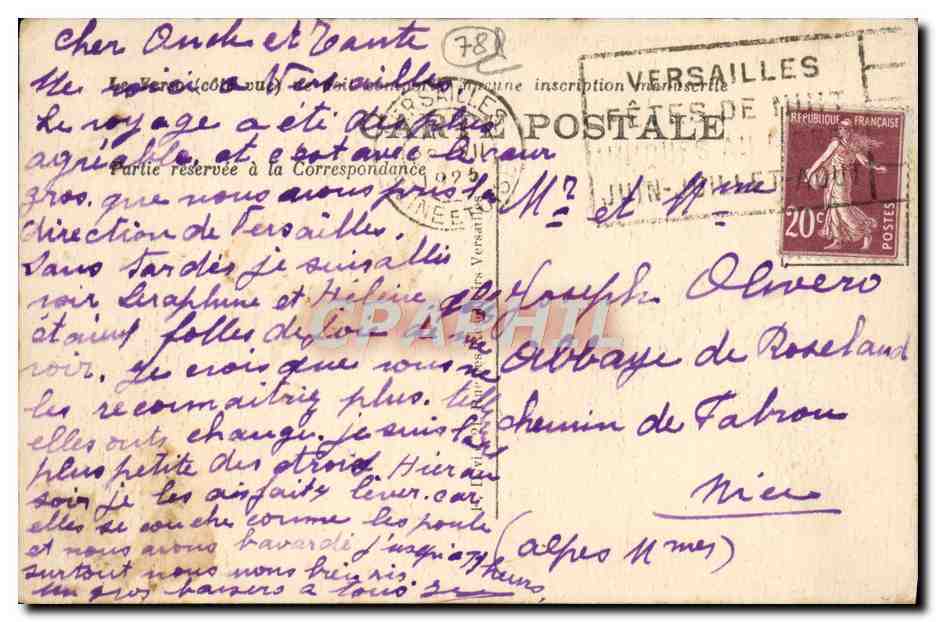 cher Oncle et Tante
Me voici a Versailles.
Le voyage a été des plus
agréable, et c'est avec le cœur
gros que nous avons pris la
direction de Versailles.
Sans tardés je suis allis
voir Seraphine et Hélène elles
étaient folles de joie de me
voir. Je crois que vous ne
les reconnaitriez plus. tell
elles onts changé. je suis la
plus petite des trois. Hier au
soir je les ais faites lever. car
elles se couche comme les poule
et nous avons bavardé j'usqu'a 11 heurs,
surtout nous nous
un gros baisers a tous
781
Le Verso (côté vue) aucune inscription manuscrite
CARTE POSTALE
Partie réservée à la Correspondance
VERSAILLES
1925
SEINE ET OISE
VERSAILLES
FÊTES DE NUIT
JUIN-JUILLET-AOUT
REPUBLIQUE FRANÇAISE
20c
POSTES
Mr et Mme
Joseph Olivero
Abbaye de Roseland
chemin de Fabron
Nice
(alpes Mmes)
Versailles
CARTAPHIL